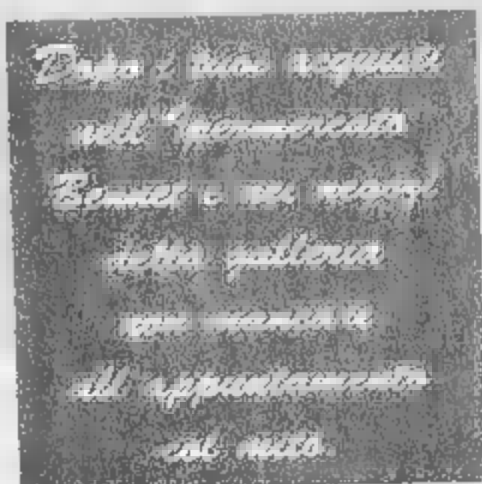 Dopo i tuoi acquisti
nell'ipermercato
Bennet e nei negozi
della galleria
non mancare
all'appuntamento
col mito.